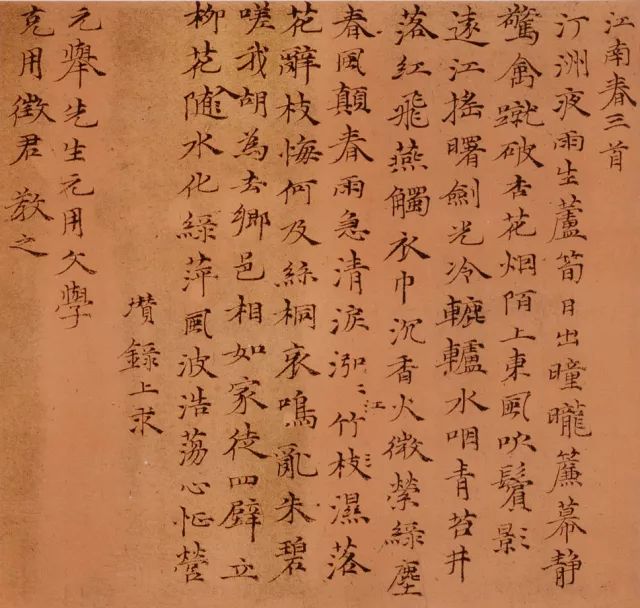 江南春三首
汀洲夜雨生蘆筍日出曈曨簾幕静
驚禽蹴破杏花烟陌上東風吹鬢影
遠江搖曙劍光冷轆轤水咽青苔井
落紅飛燕觸衣巾沉香火微縈綠塵
春風顛春雨急清淚泓泓江竹枝濕落
花辭枝悔何及絲桐哀鳴亂朱碧
嗟我胡為去鄉邑相如家徒四壁立
柳花隨水化綠萍風波浩蕩心怔營
瓚錄上求
元舉先生元用文學
克用徵君教之